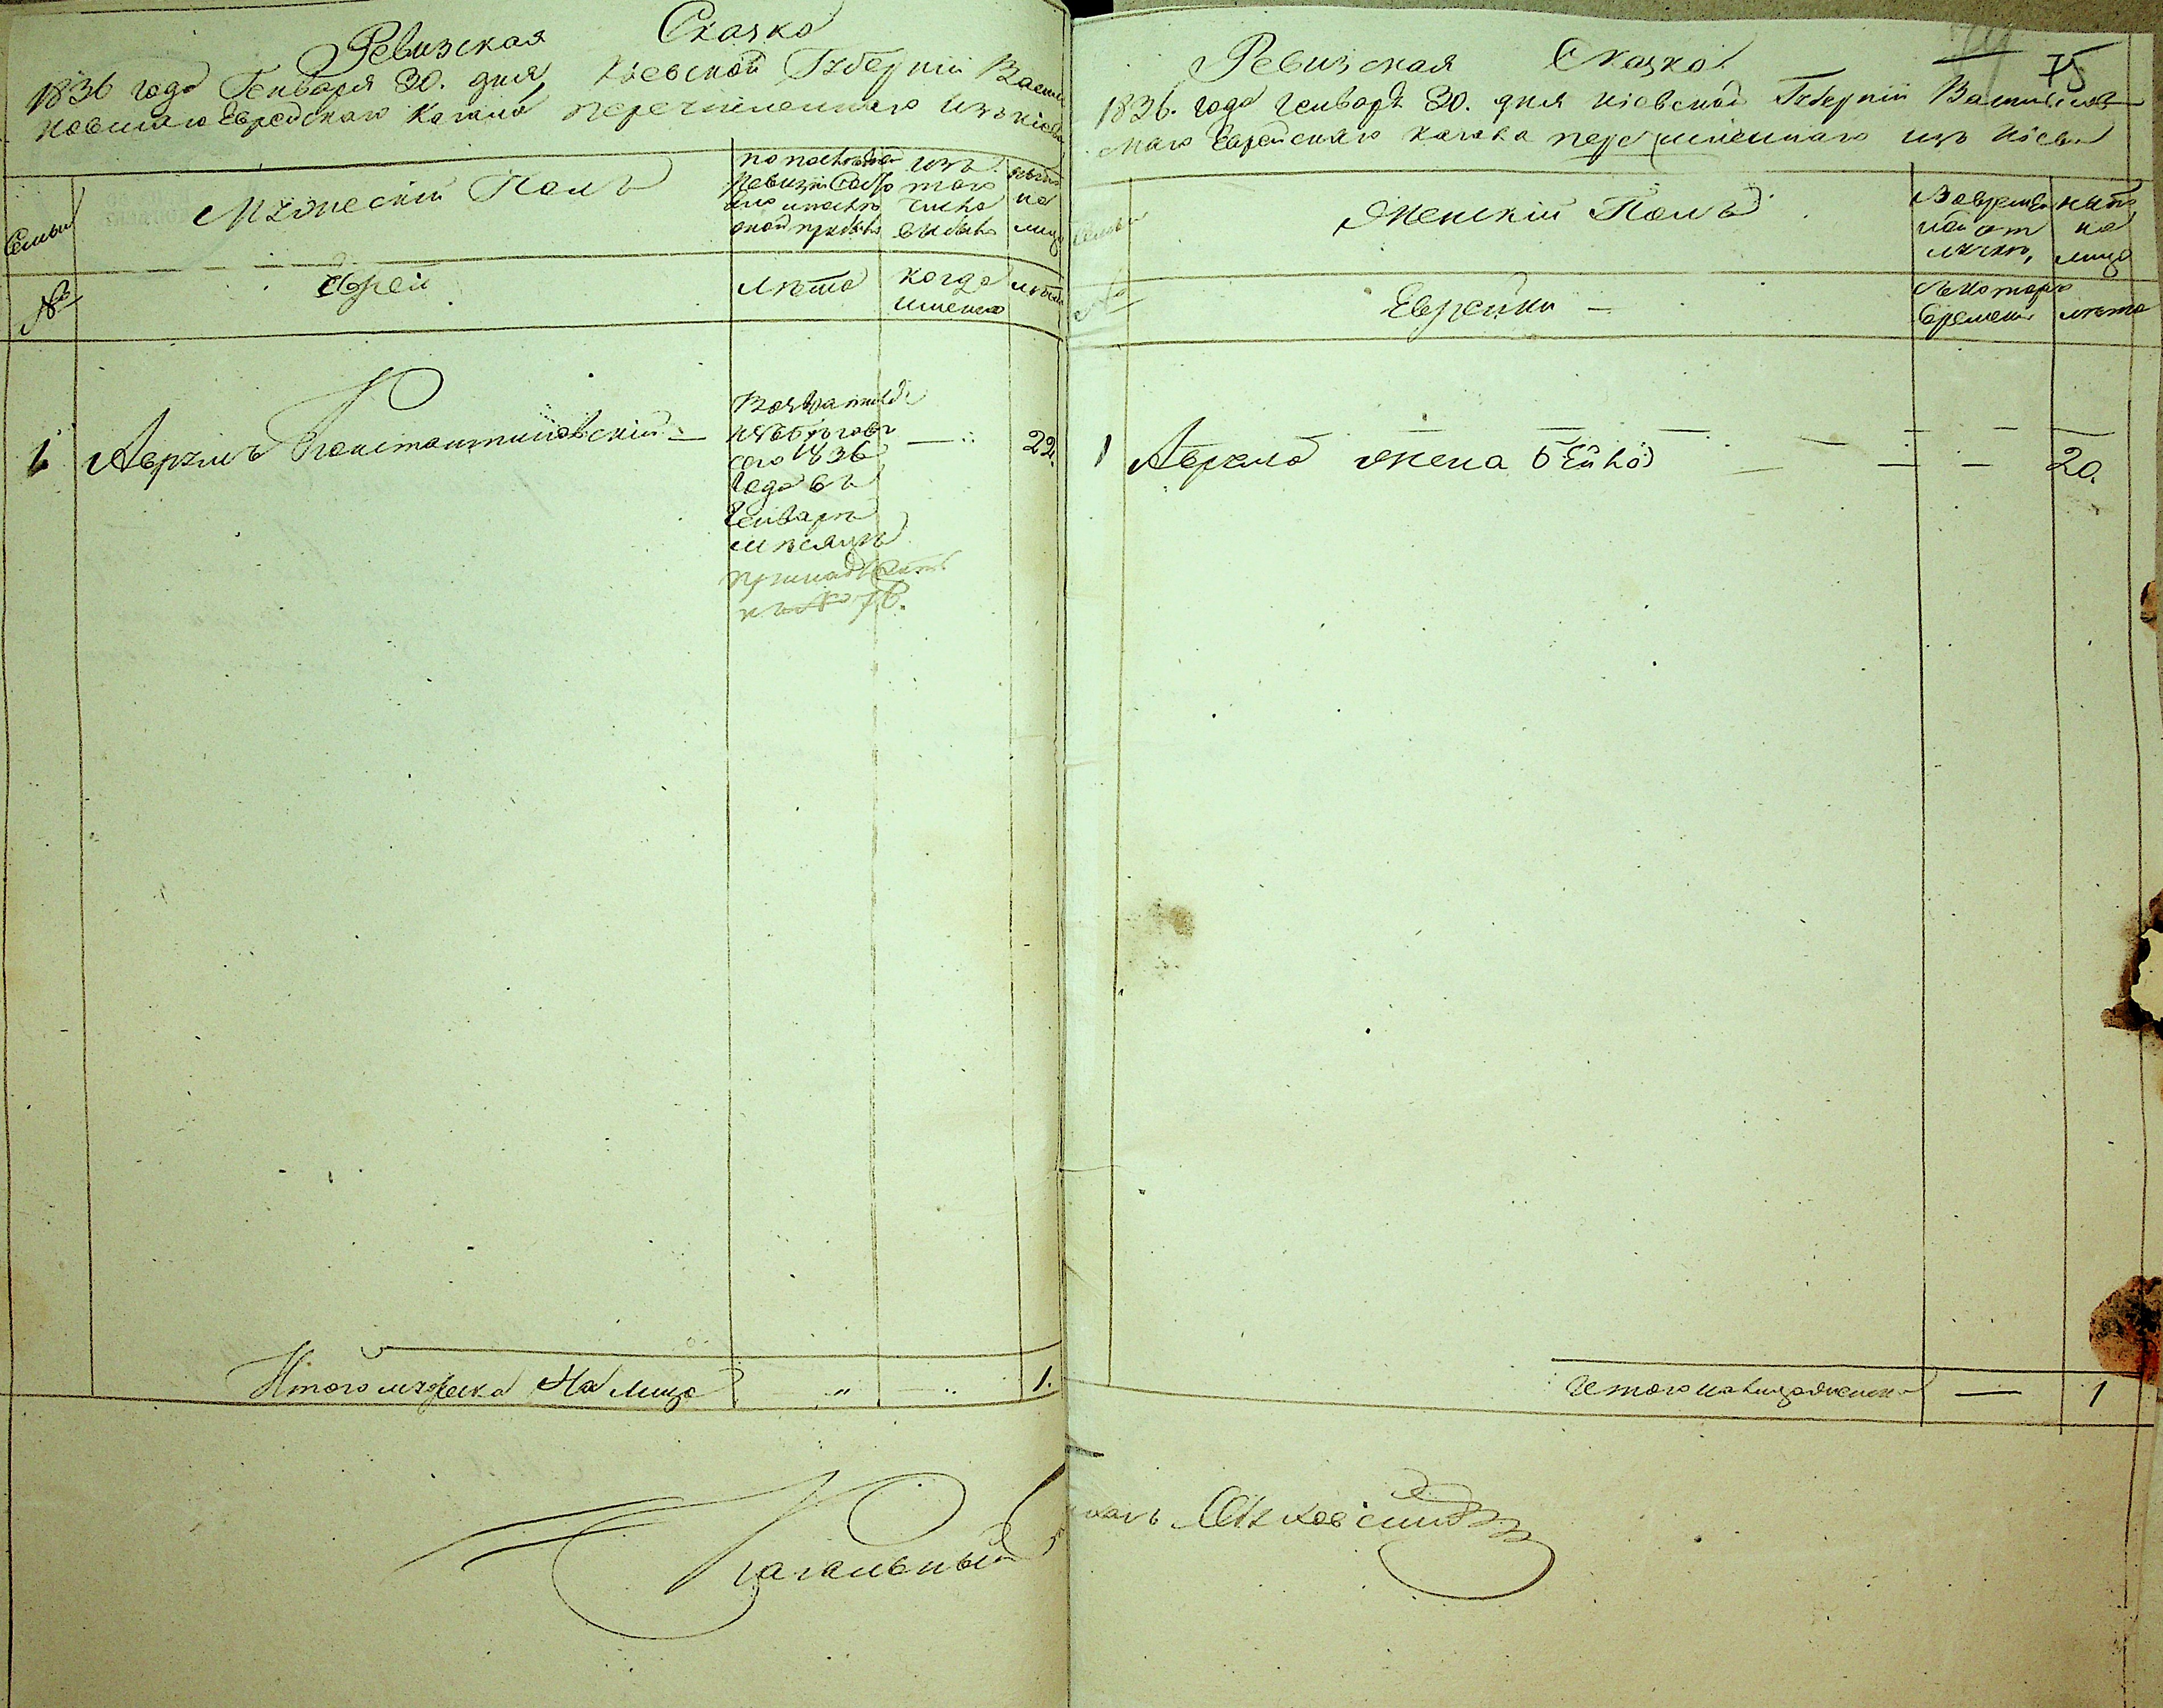 Ревизская Сказка
1836 года Генваря 30. дня Кіевской Губерніи Васил
ковскаго Еврейскаго Кагала перечисленнаго изъ Кіева
Семьи
Мужескій Полъ
по последней
ревизіи состо
яло и после
оной прибыло
изъ
того
числа
выбыло
ныне
на
лицо
№
Еврей
лета
когда
именно
лета
1 Аврумъ Константиновскій —
сего 1836
года въ
Генваре
месяце
принадлежит
къ № 76.
22.
Итого мужеска На лицо " " 1.
Кагальный
75
Ревизская Сказка
1836. года Генваря 30. дня Кіевской Губерніи Васильков
скаго Еврейскаго Кагала перечисленнаго изъ Кіева
Семьи
Женскій Полъ
Во времен
ной от
лучке,
ныне
на
лицо
№
Еврейки —
Съ котораго
времени
лета
1 Аврума жена Бейла — — — 20.
Итого на лицо женска — 1